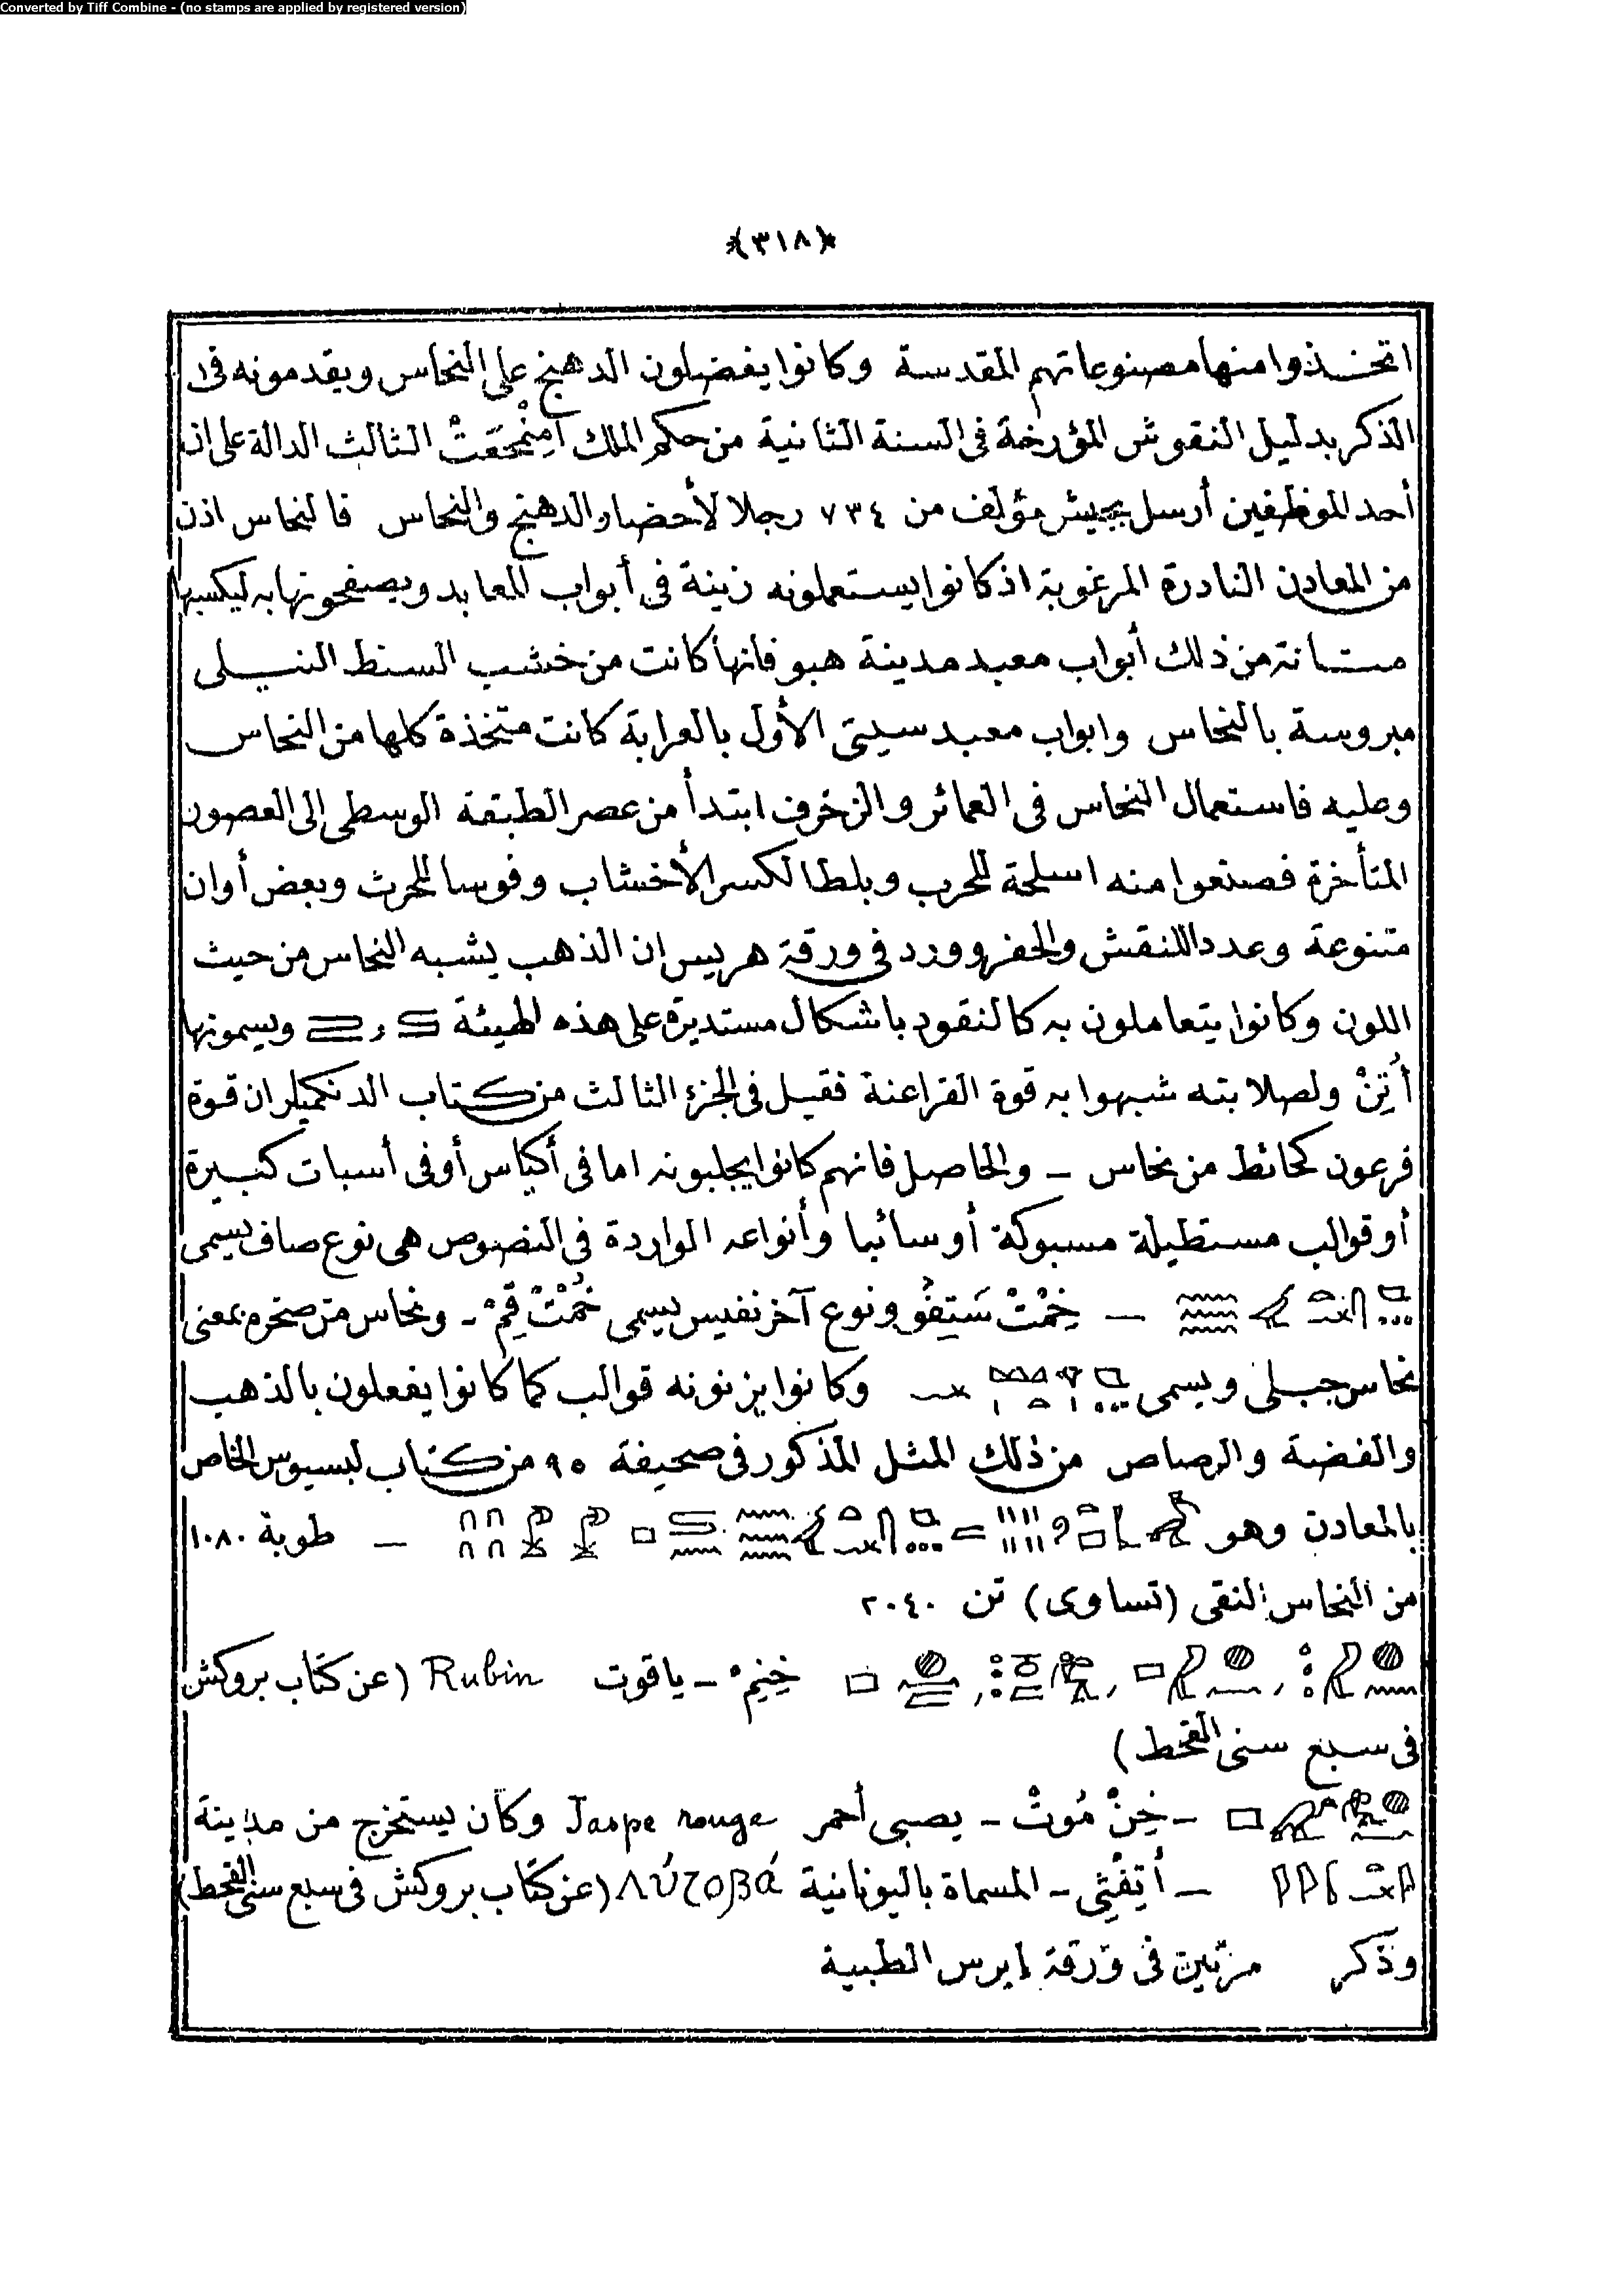 Converted by Tiff Combine - (no stamps are applied by registered version)
﴿٣١٨﴾
اتخذوا منها مصنوعاتهم المقدسة وكانوا يفضلون الدهنج على النحاس ويقدمونه فى
الذكر بدليل النقوش المؤرخة فى السنة الثانية من حكم الملك الثالث الدالة على ان
أحد الموظفين أرسل بجيش مؤلف من ٧٣٤ رجلا لأحضار الدهنج والنحاس فالنحاس اذن
من المعادن النادرة المرغوبة اذ كانوا يستعملونه زينة فى أبواب المعابد ويصفحونها به ليكسبها
متانة من ذلك أبواب معبد مدينة هبو فانها كانت من خشب السنط النيلى
مبروسة بالنحاس وابواب معبد سيتى الأول بالعرابة كانت متخذة كلها من النحاس
وعليه فاستعمال النحاس فى العمائر والزخرف ابتدأ من عصر الطبقة الوسطى إلى العصور
المتأخرة فصنعوا منه اسلحة للحرب وبلطا لكسر الأخشاب وفوسا للحرث وبعض أوان
متنوعة وعددا للنقش والحفر وورد فى ورقة هريس ان الذهب يشبه النحاس من حيث
اللون وكانوا يتعاملون به كالنقود باشكال مستديرة على هذه الهيئة ويسمونها
أُتِنْ ولصلابته شبهوا به قوة الفراعنة فقيل فى الجزء الثالث من كتاب الدنكميلر ان قوة
فرعون كحائط من نحاس - والحاصل فانهم كانوا يجلبونه اما فى أكياس أو فى أسبات كبيرة
أو قوالب مستطيلة مسبوكة أو سائبا وأنواعه الواردة فى النصوص هى نوع صاف يسمى
— خِمْتْ سَتِفُو ونوع آخر نفيس يسمى خُمْتْ قِمْ - ونحاس من صخره بمعنى
نحاس جبلى ويسمى وكانوا يزنونه قوالب كما كانوا يفعلون بالذهب
والفضة والرصاص من ذلك المثل المذكور فى صحيفة ٩٥ من كتاب لبسيوس الخاص
بالمعادن وهو — طوبة ١٠٨٠
من النحاس النقى (تساوى) تن ٢٠٤٠
خِنِمْ - ياقوت Rubin (عن كتاب بروكش
فى سبع سنى القحط)
- خِنْ مُوتْ - يصبى أحمر Jaspe rouge وكان يستخرج من مدينة
- أتِفْتِى - المسماة باليونانية (عن كتاب بروكش فى سبع سنى القحط)
وذكر مرتين فى ورقة إبرس الطبية